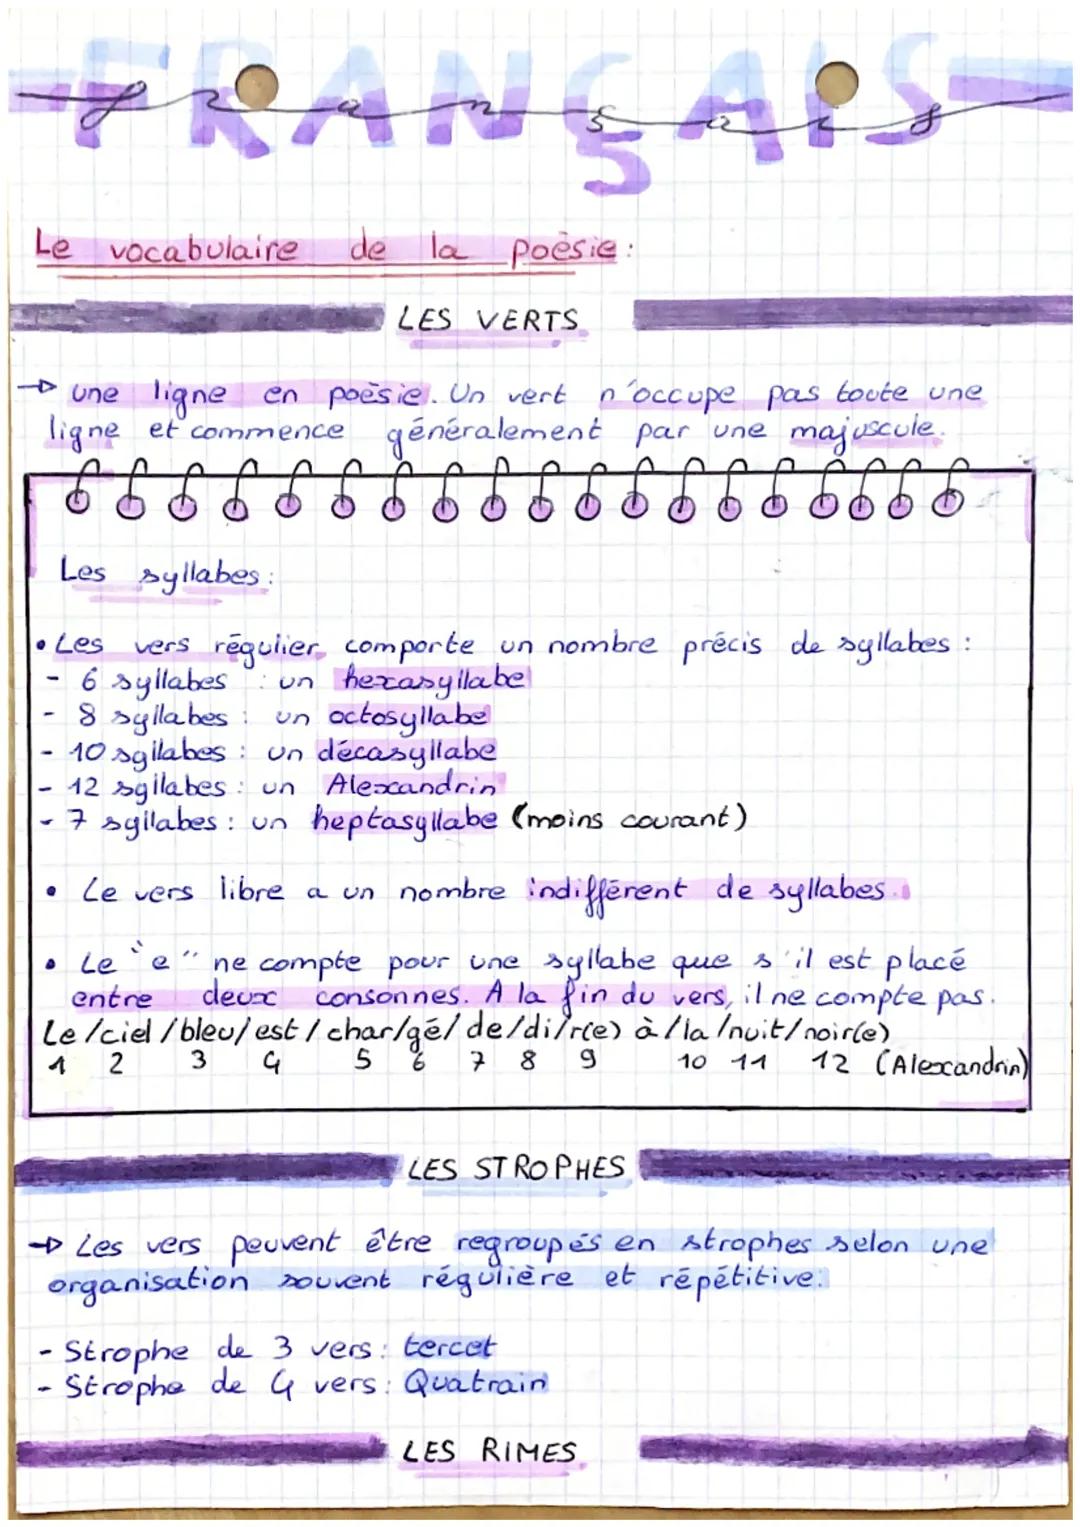 FRANÇAIS
français
Le vocabulaire de la poèsie :
LES VERTS
→ une ligne en poèsie. Un vert n'occupe pas toute une
ligne et commence généralement par une majuscule.
Les syllabes :
• Les vers régulier comporte un nombre précis de syllabes :
- 6 syllabes : un hexasyllabe
- 8 syllabes : un octosyllabe
- 10 syllabes : un décasyllabe
- 12 syllabes : un Alexandrin
- 7 syllabes : un heptasyllabe (moins courant)
• Le vers libre a un nombre indifférent de syllabes.
• Le "e" ne compte pour une syllabe que s'il est placé
entre deux consonnes. A la fin du vers, il ne compte pas.
Le /ciel /bleu/ est / char/gé/ de /di/r(e) à /la /nuit/ noir(e)
1 2 3 4 5 6 7 8 9 10 11 12 (Alexandrin)
LES STROPHES
→ Les vers peuvent être regroupés en strophes selon une
organisation souvent régulière et répétitive :
- Strophe de 3 vers : tercet
- Strophe de 4 vers : Quatrain
LES RIMES